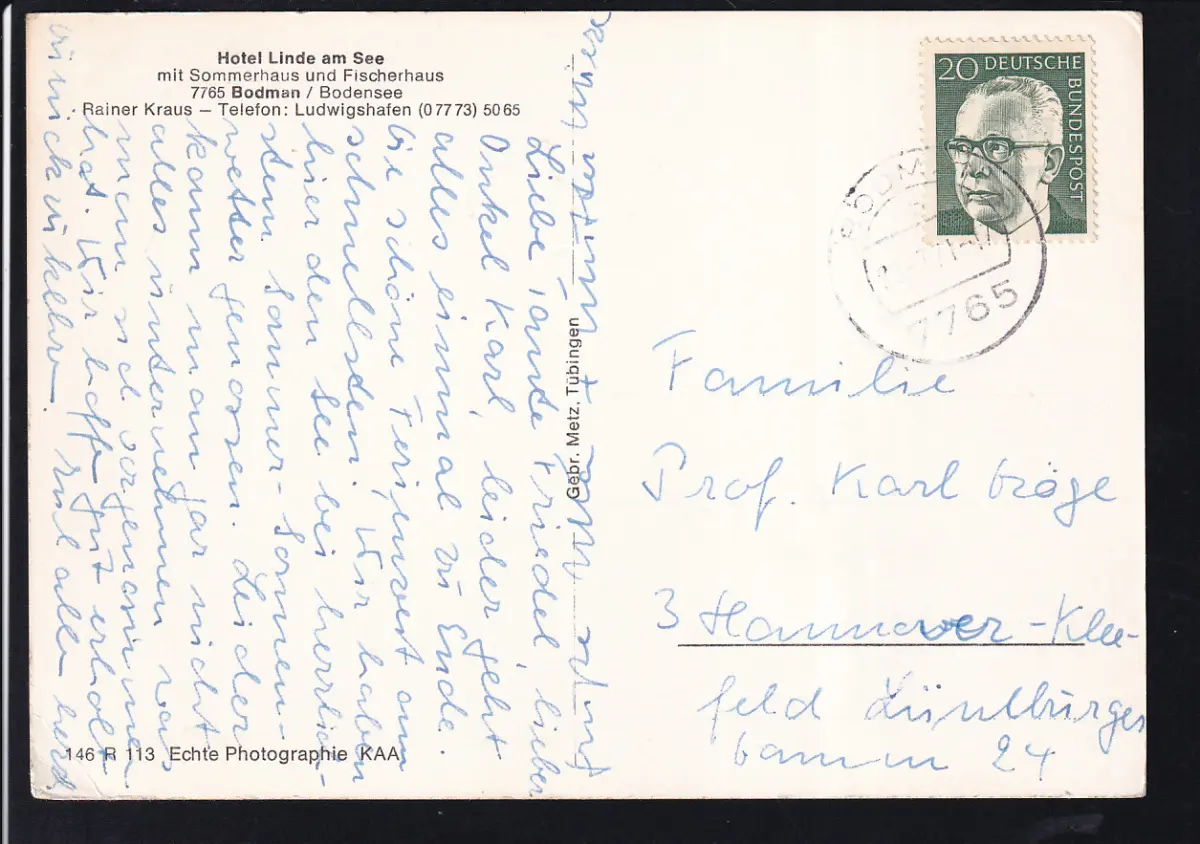 Hotel Linde am See
mit Sommerhaus und Fischerhaus
7765 Bodman / Bodensee
Rainer Kraus – Telefon: Ludwigshafen (0 77 73) 50 65
Liebe Tante Friedel, lieber
Onkel Karl, leider geht
alles einmal zu Ende.
die schöne Ferienzeit am
schnellsten. Wir haben
hier den See bei herrlich-
stem Sommer-Sonnen-
wetter genossen. Leider
kann man gar nicht
alles unternehmen was
man sich vorgenommen
hat. Wir hoffen gut erholt
zurückzukehren. Euch allen herz
Gebr. Metz, Tübingen
146 R 113 Echte Photographie KAA
20 DEUTSCHE BUNDESPOST
BODMAN
7765
Familie
Prof. Karl Gröge
3 Hannover-Klee-
feld Lüneburger
damm 24